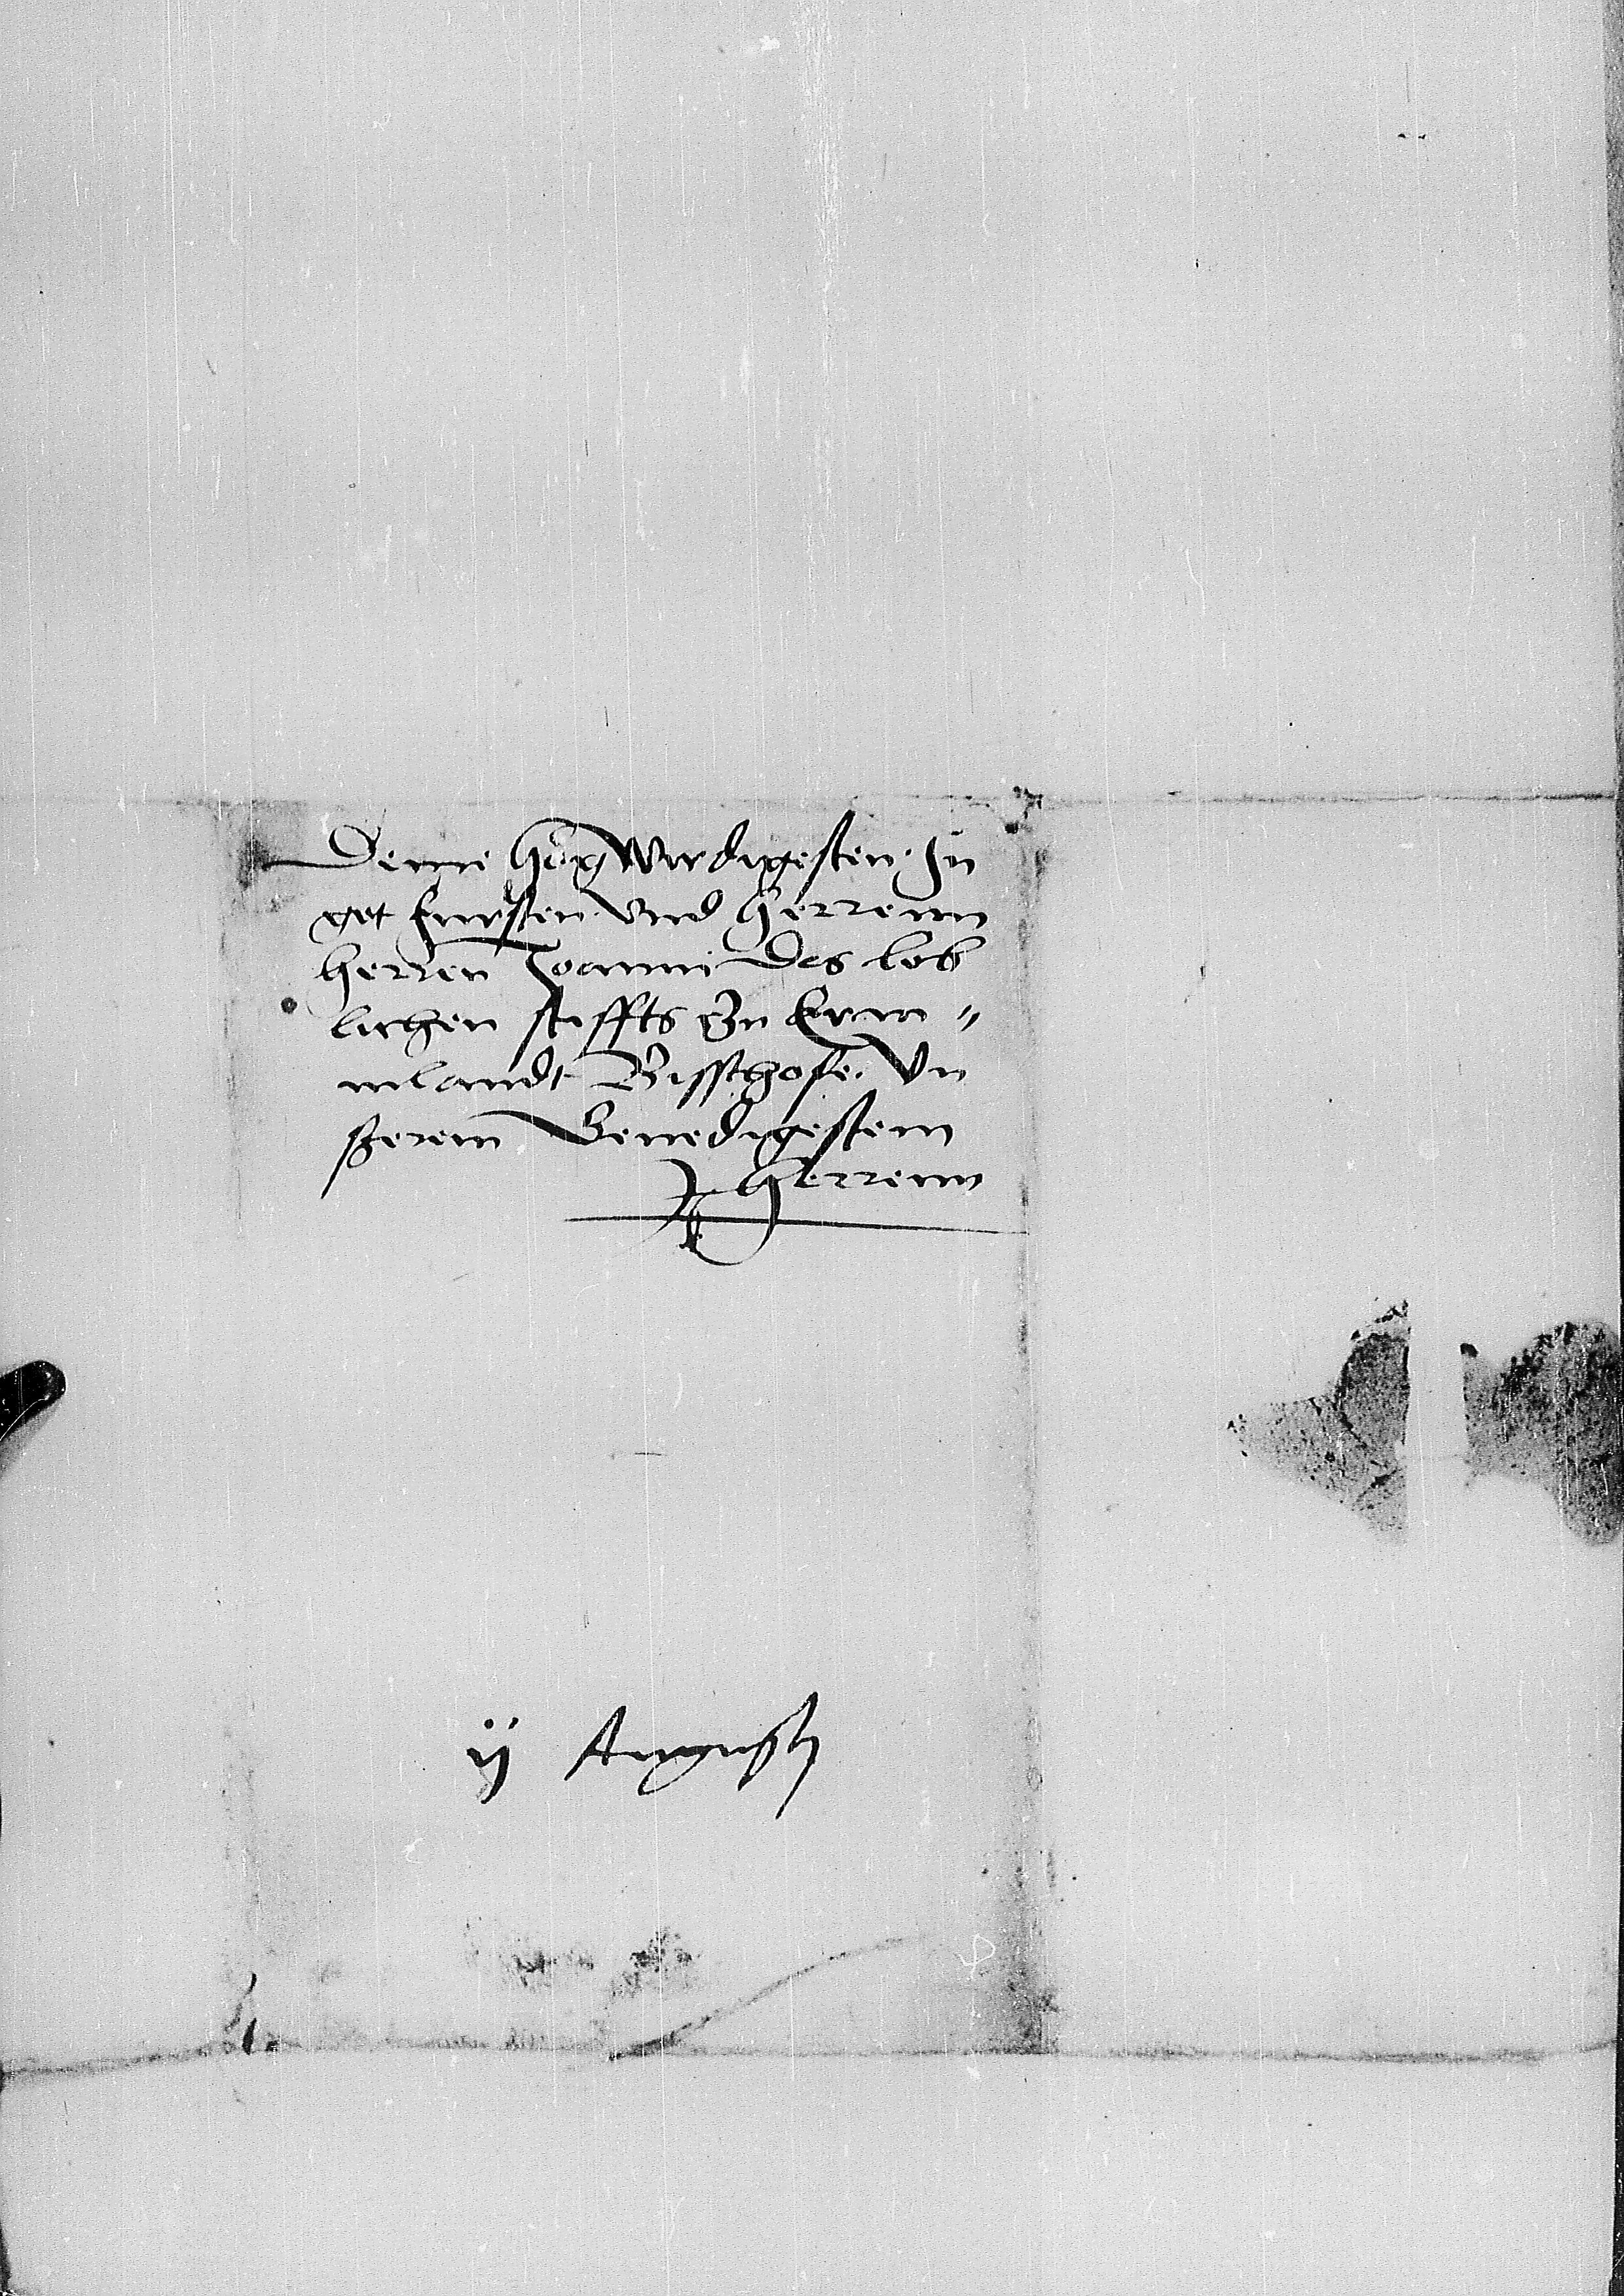 Deme hogwirdigesten. In
got fursten. vnd herrenn
herren Joanni des lob
lichen stiffts zu Erm〃
mlandt Bisschofe. vn
szerem Genedigestem
herrenn
ij Augusti